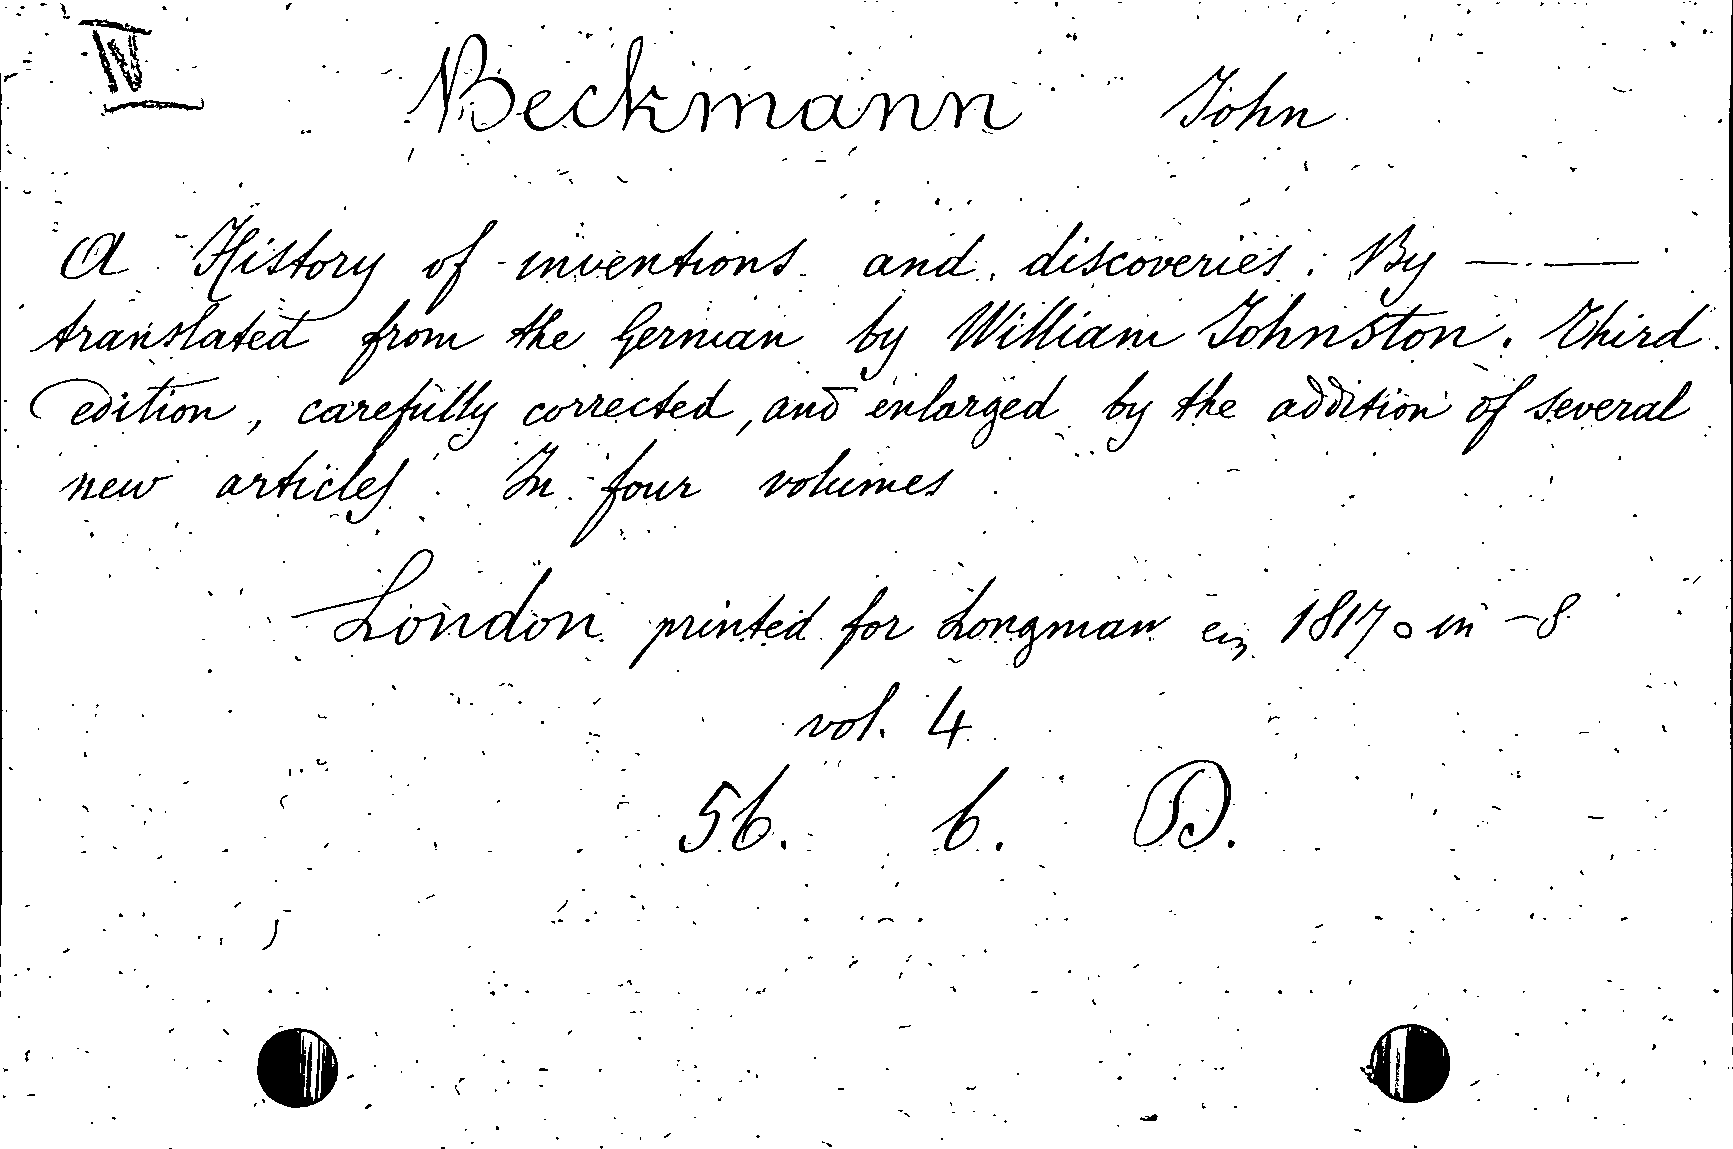 IV
Beckmann John
A History of inventions and discoveries. By — —
translated from the German by William Johnston. Third
edition, carefully corrected, and enlarged by the addition of several
new articles. In four volumes
London printed for Longman 1817 in-8
vol. 4
56. 6.